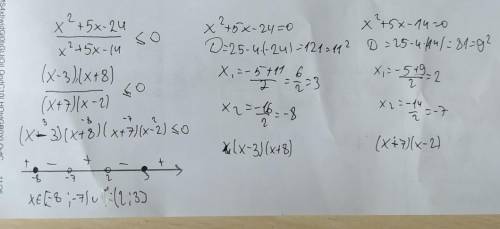 x²+5x-24
x²+5x-14 ≤0
(x-3)(x+8)
(x+7)(x-2) ≤0
3 -8 -7 2
(x-3)(x+8)(x+7)(x-2)≤0
+ - + - +
-8 -7 2 3
x∈[-8;-7)∪(2;3)
x²+5x-24=0
D=25-4·(-24)=121=11²
x₁=-5+11/2=6/2=3
x₂=-16/2=-8
(x-3)(x+8)
x²+5x-14=0
D=25-4·(14)=81=9²
x₁=-5+9/2=2
x₂=-14/2=-7
(x+7)(x-2)